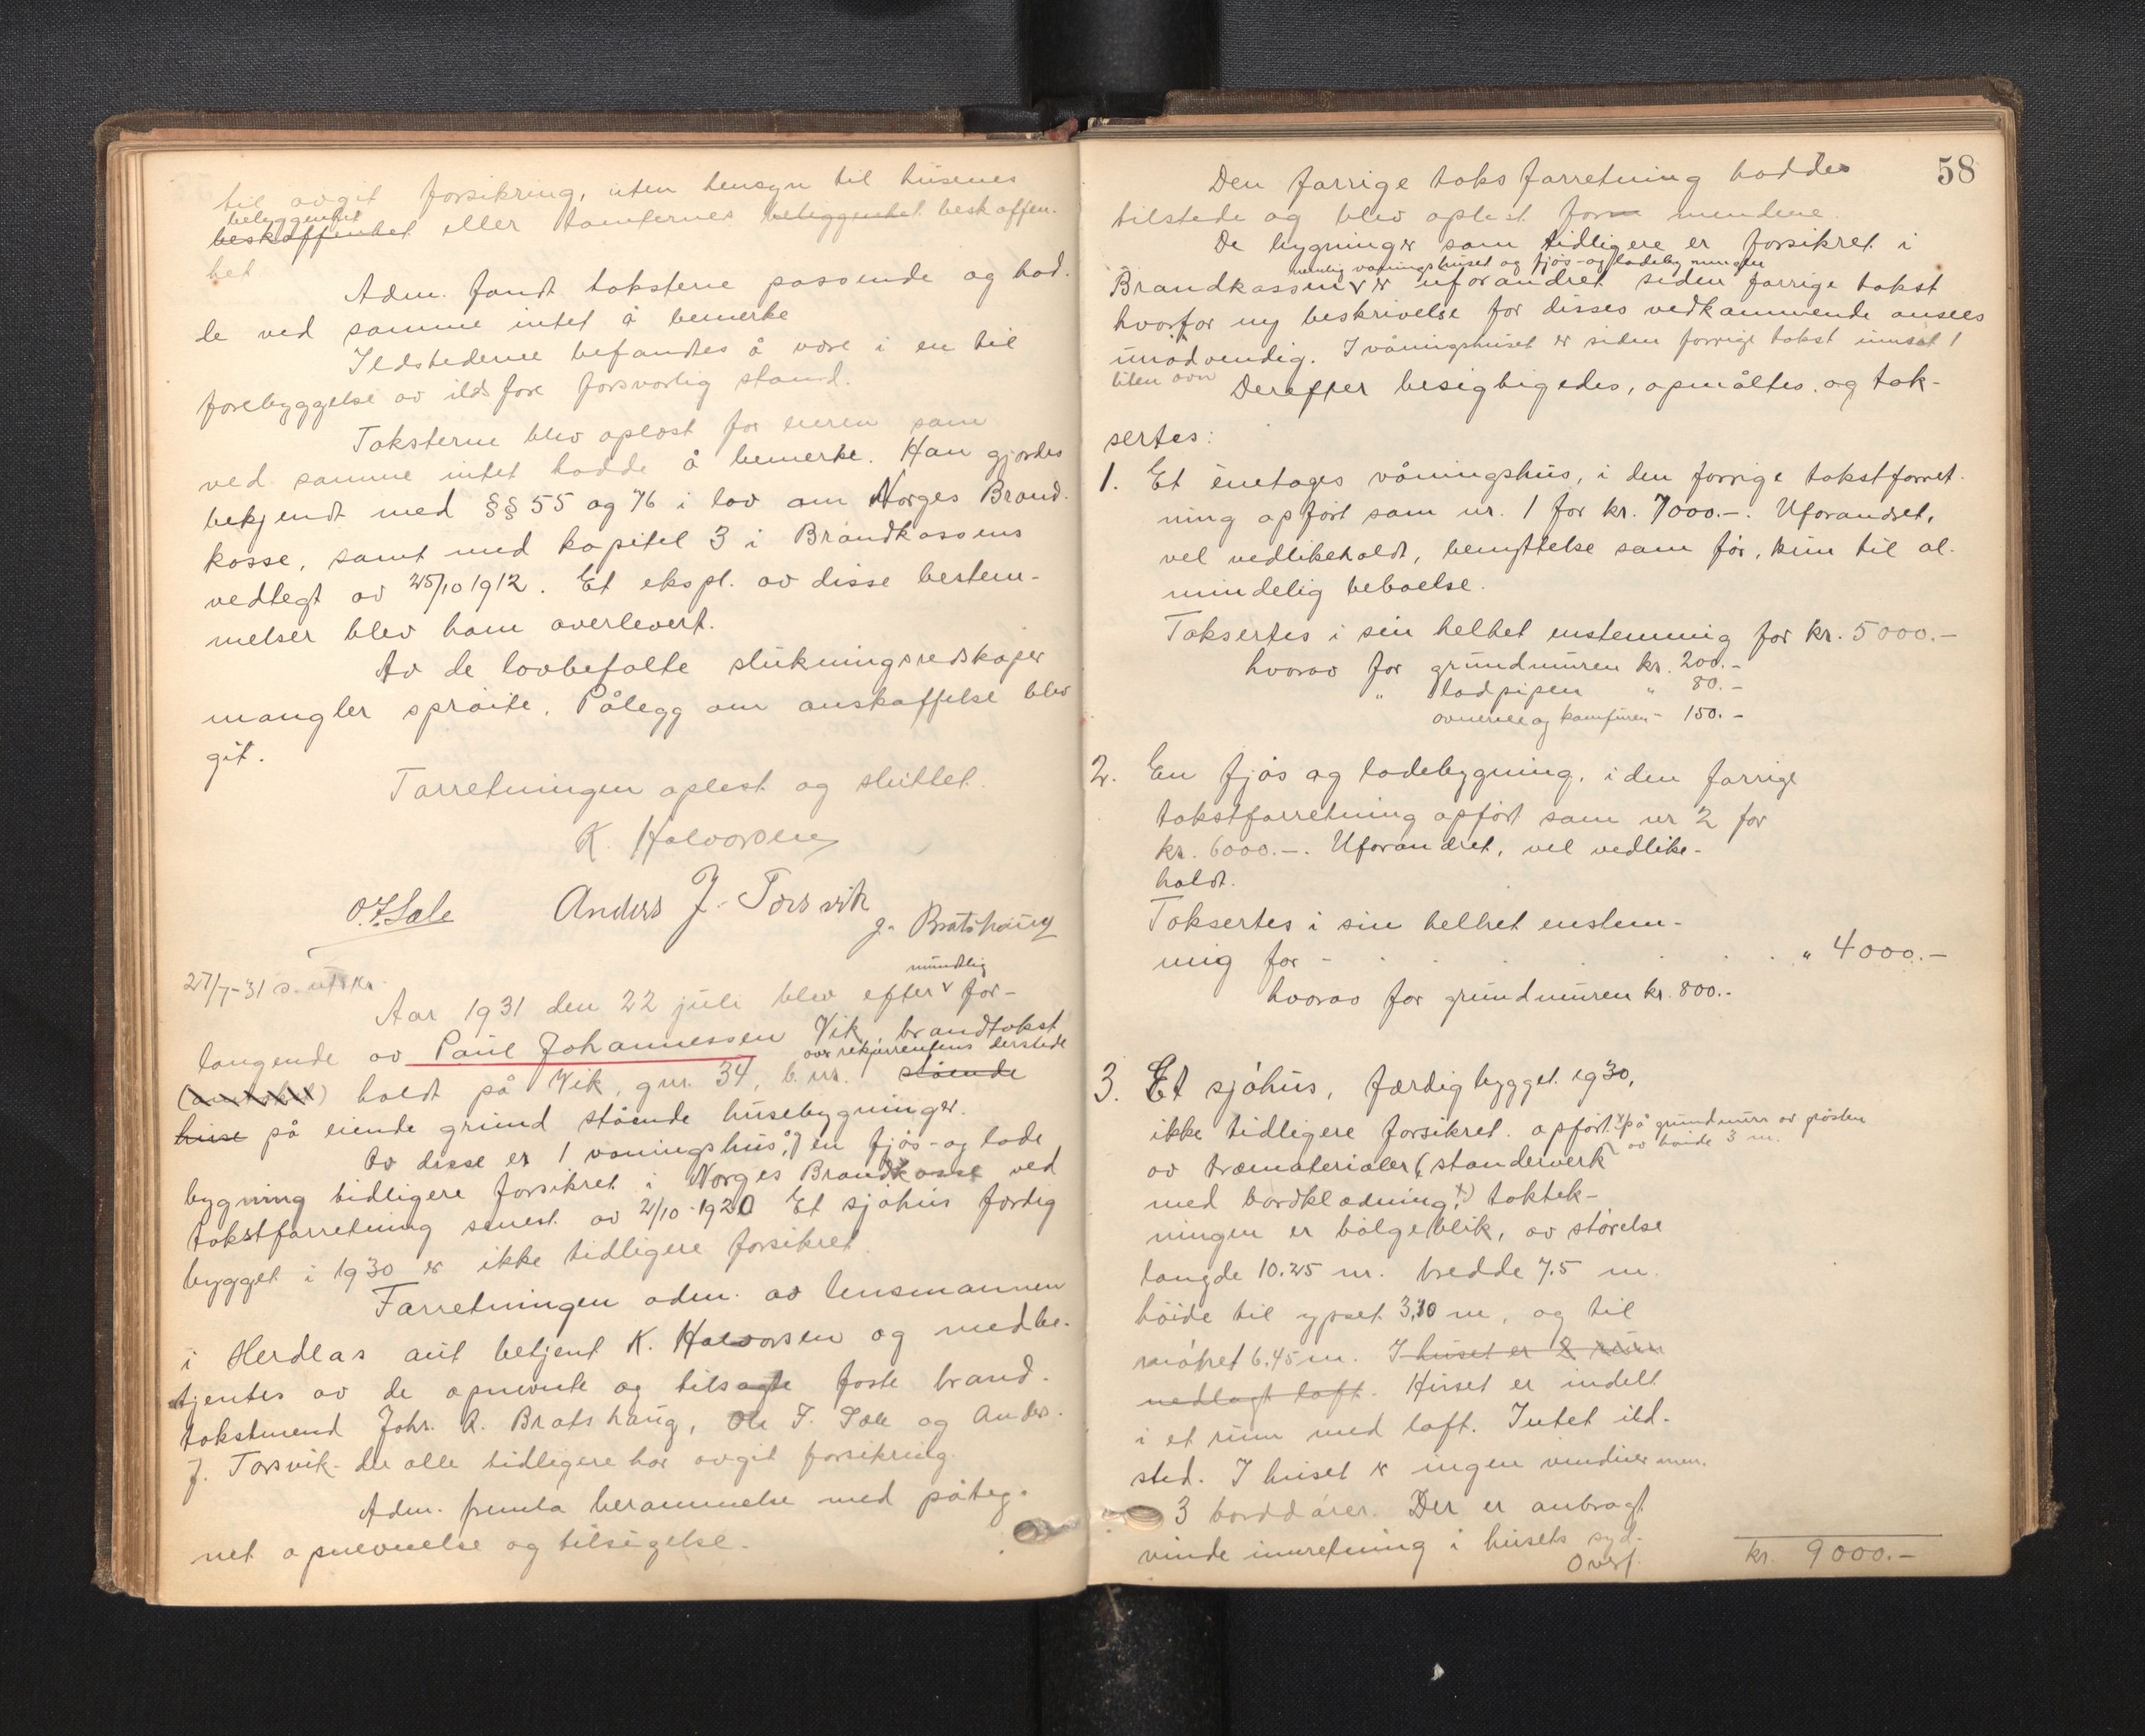 til avgit forsikring, uten hensyn til husenes
beliggenhet
beskaffenhet eller tomternes beliggenhet beskaffen-
het
Adm. fandt taksterne passende og had-
de ved samme intet å bemerke
Ildstederne befandtes å være i en til
forebyggelse av ildsfare forsvarlig stand.
Taksterne blev oplæst for eieren som
ved samme intet hadde å bemerke. Han gjordes
bekjendt med §§ 55 og 76 i lov om Norges Brand-
kasse, samt med kapitel 3 i Brandkassens
vedtegt av 25/10 1912. Et ekspl. av disse bestem-
melser blev ham overlevert.
Av de lovbefalte slukningsredskaper
mangler sprøite. Pålegg om anskaffelse blev
git.
Forretningen oplest og sluttet.
K. Halvorsen
O. F. Sale Anders J. Torsvik
J. Bratshaug
27/7-31 s. utskr.
mundtlig
Aar 1931 den 22 juli blev efter for-
langende av Paul Johannessen Vik brandtakst
over rekvirentens derstede
holdt på Vik, gnr. 34, b. nr. stående
huse på eiende grund stående husebygninger.
Av disse er 1 våningshus og en fjøs- og lade
bygning tidligere forsikret i Norges Brandkasse ved
takstforretning senest av 2/10-1920 Et sjøhus færdig
bygget i 1930 er ikke tidligere forsikret.
Forretningen adm. av lensmannen
i Herdlas aut betjent K. Halvorsen og medbe-
tjentes av de opnevnte og tilsagte faste brand-
takstmend Johs. A. Bratshaug, Ole F. Sale og Anders
J. Torsvik der alle tidligere har avgit forsikring.
Adm. fremla berammelse med påteg-
net opnevnelse og tilsigelse.
58
Den forrige takstforretning haddes
tilstede og blev oplest for mendene.
De bygninger som tidligere er forsikret i
nemlig våningshuset og fjøs- og ladebygningen
Brandkassen er uforandret siden forrige takst
hvorfor ny beskrivelse for disses vedkommende ansees
unødvendig. I våningshuset er siden forrige takst innsat 1
liten ovn
Derefter besigtigedes, opmåltes og tak-
sertes:
1. Et enetages våningshus, i den forrige takstforret-
ning opført som nr. 1 for kr. 7000.-. Uforandret,
vel vedlikeholdt, benyttelse som før, kun til al-
mindelig beboelse.
Taksertes i sin helhet enstemmig for kr. 5000.-
hvorav for grundmuren kr. 200.-
" ladpipen " 80.-
ovnerne og komfuren - 150.-
2. En fjøs og ladebygning, i den forrige
takstforretning opført som nr 2 for
kr. 6000.-. Uforandret, vel vedlike-
holdt.
Taksertes i sin helhet enstem-
mig for - . . . . . " 4000.-
hvorav for grundmuren kr. 800.-
3. Et sjøhus, færdigbygget 1930,
ikke tidligere forsikret. opført x) på grundmur av gråsten
av høide 3 m.
av træmaterialer (standerverk
med bordklædning) taktek-
ningen er bølgeblik, av størelse
længde 10.25 m. bredde 7.5 m.
høide til gpset 3,30 m, og til
mønet 6.45 m. I huset er 2 rum
nedlagt loft. Huset er indelt
i et rum med loft. Intet ild-
sted. I huset er ingen vinduer men
3 borddører. Der er anbragt
vinde innretning i husets syd-
Overf. kr. 9000.-